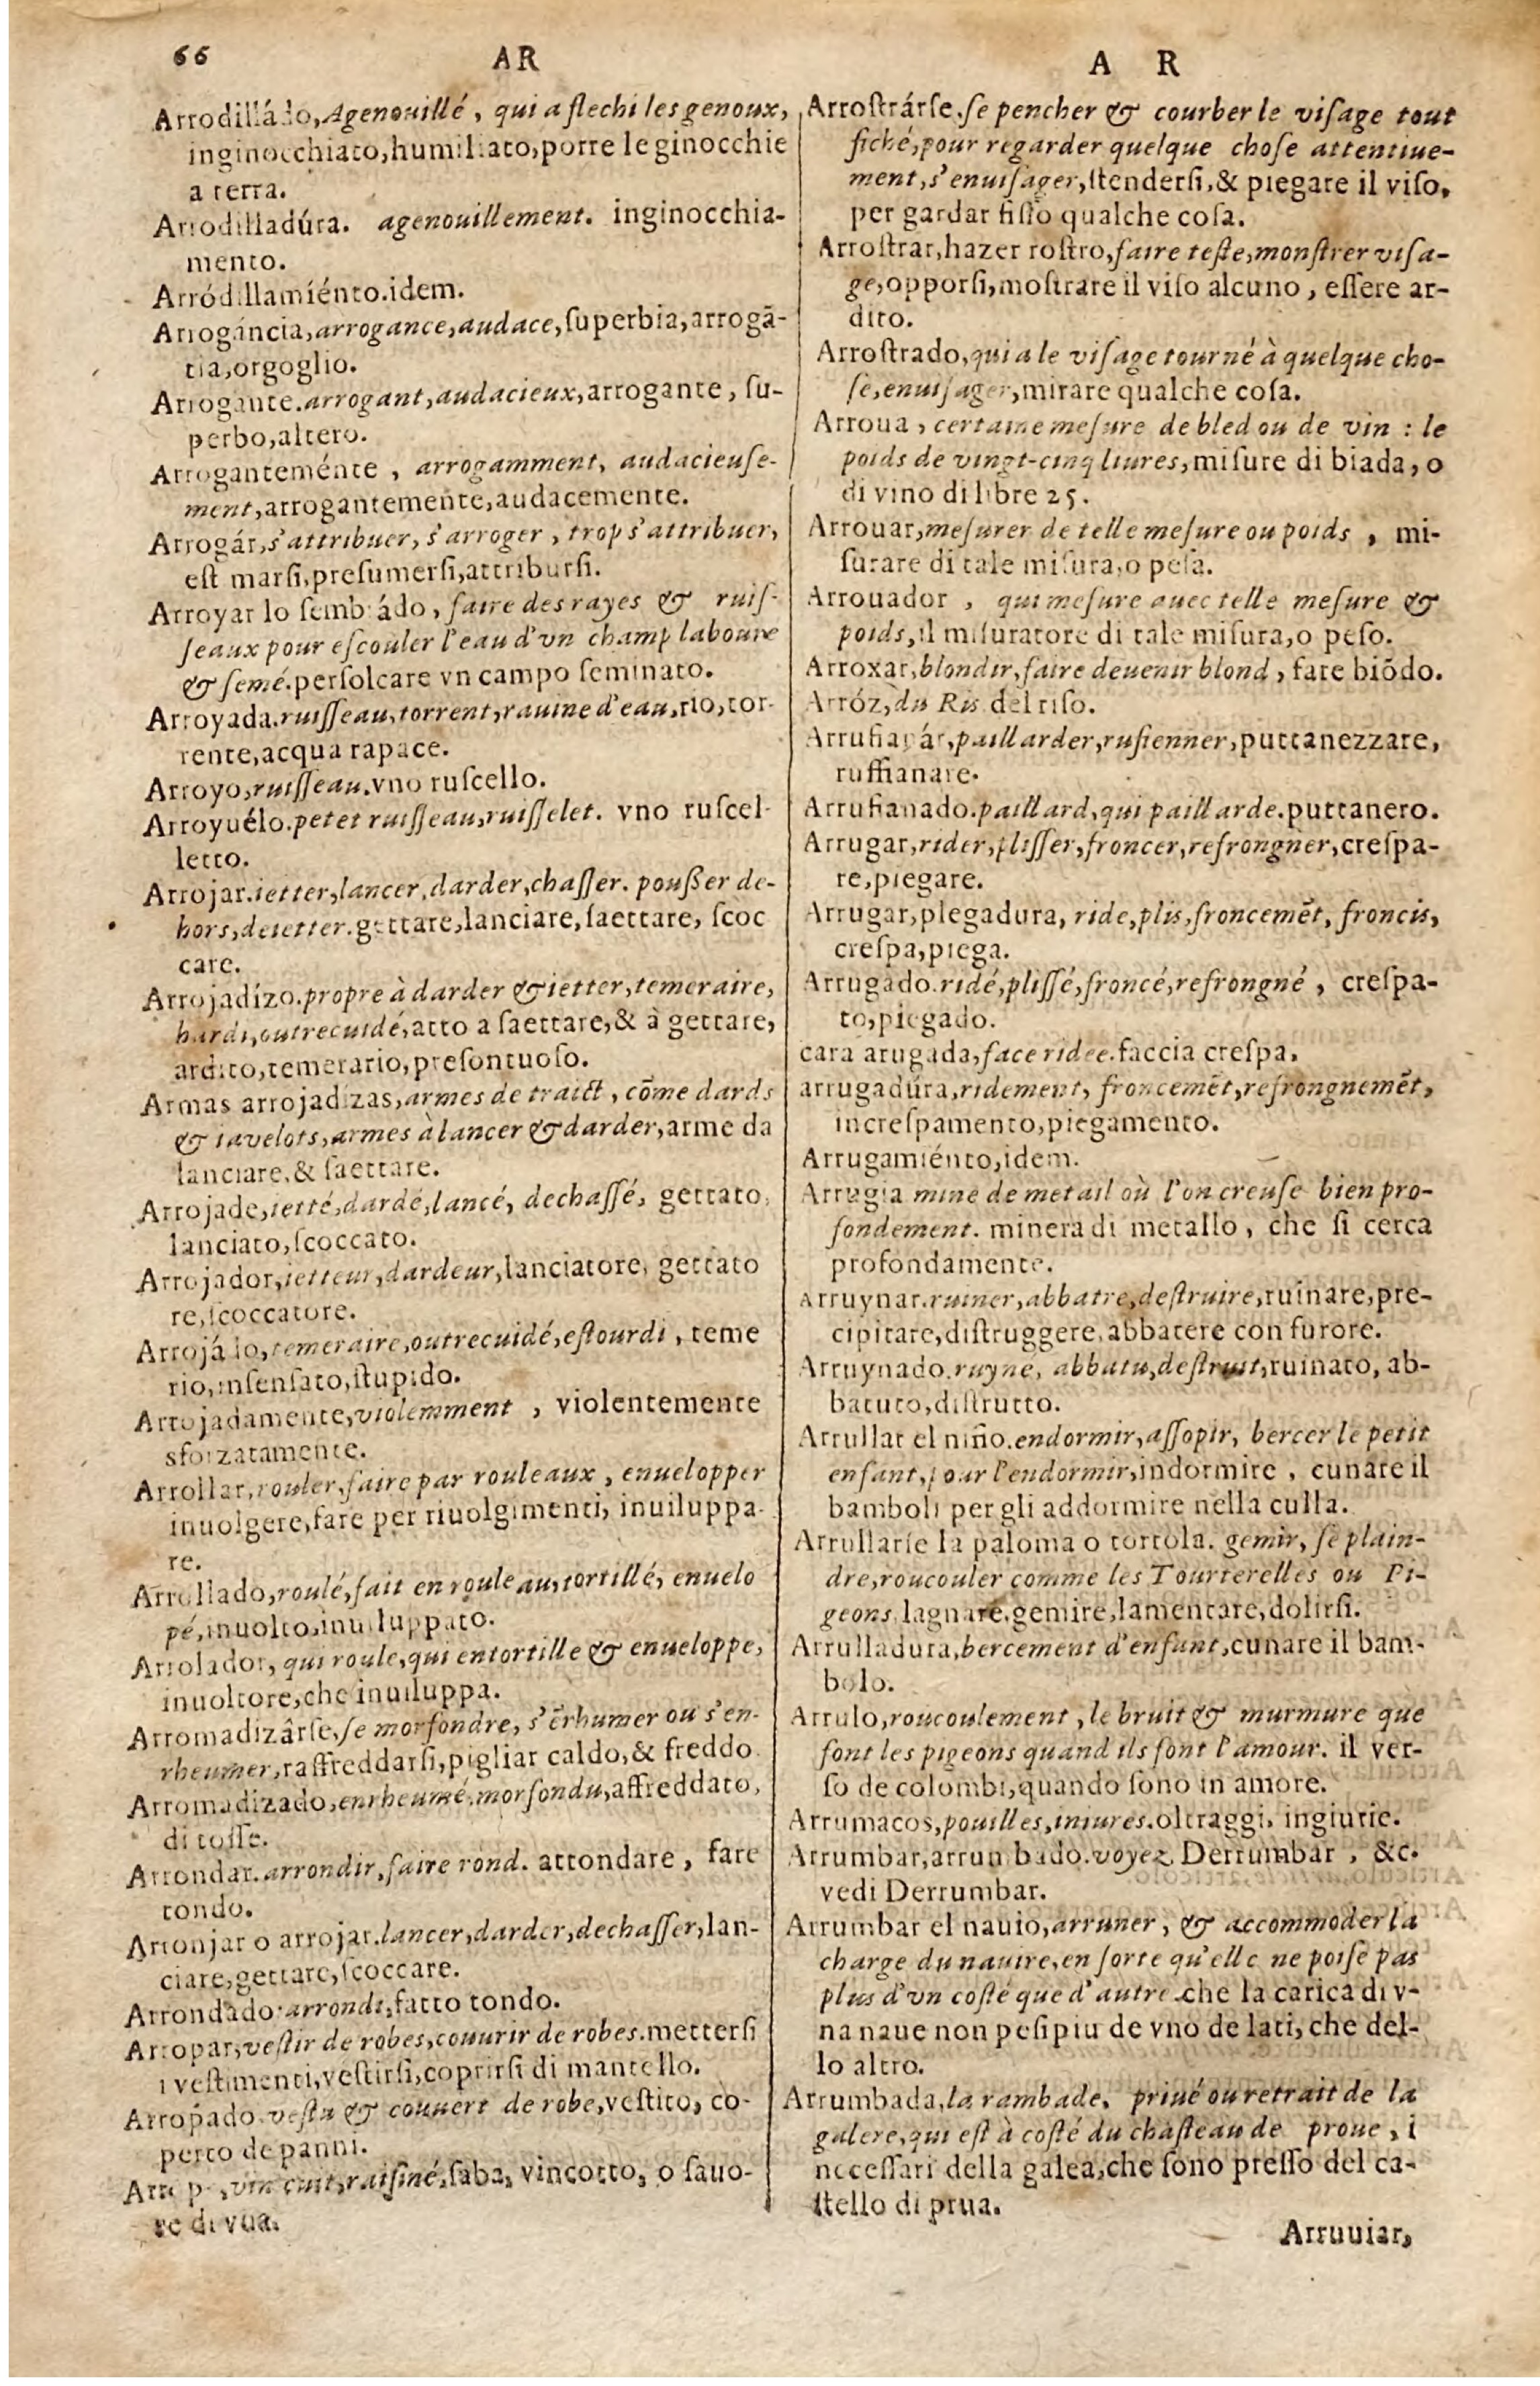 66 AR
Arrodilládo, Agenouillé, qui a flechi les genoux,
inginocchiato, humiliato, porre le ginocchie
a terra.
Arrodilladúra. agenouillement. inginocchia-
mento.
Arródillamiénto. idem.
Arrogáncia, arrogance, audace, ſuperbia, arrogā-
tia, orgoglio.
Arrogante. arrogant, audacieux, arrogante, ſu-
perbo, altero.
Arroganteménte, arrogamment, audacieuſe-
ment, arrogantemente, audacemente.
Arrogár, s'attribuer, s'arroger, trop s'attribuer,
eſt marſi, preſumerſi, attriburſi.
Arroyar lo ſembrádo, faire des rayes & ruiſ-
ſeaux pour eſcouler l'eau d'vn champ labouré
& ſemé. perſolcare vn campo ſeminato.
Arroyada. ruiſſeau, torrent, rauine d'eau, rio, tor-
rente, acqua rapace.
Arroyo, ruiſſeau. vno ruſcello.
Arroyuélo. petet ruiſſeau, ruiſſelet. vno ruſcel-
letto.
Arrojar. ietter, lancer, darder, chaſſer. pouſſer de-
hors, deietter. gettare, lanciare, ſaettare, ſcoc
care.
Arrojadízo. propre à darder & ietter, temeraire,
hardi, outrecuidé, atto a ſaettare, & à gettare,
ardito, temerario, preſontuoſo.
Armas arrojadizas, armes de traict, cōme dards
& iavelots, armes à lancer & darder, arme da
lanciare, & ſaettare.
Arrojade, ietté, dardé, lancé, dechaſſé, gettato,
lanciato, ſcoccato.
Arrojador, ietteur, dardeur, lanciatore, gettato
re, ſcoccatore.
Arrojádo, temeraire, outrecuidé, eſtourdi, teme
rio, inſenſato, ſtupido.
Arrojadamente, violemment, violentemente
sforzatamente.
Arrollar, rouler, faire par rouleaux, enuelopper
inuolgere, fare per riuolgimenti, inuiluppa-
re.
Arrollado, roulé, fait en rouleau, tortillé, enuelo
pé, inuolto, inuiluppato.
Arrolador, qui roule, qui entortille & enueloppe,
inuoltore, che inuiluppa.
Arromadizârſe, ſe morfondre, s'ērhumer ou s'en-
rheumer, raffreddarſi, pigliar caldo, & freddo.
Arromadizado, enrheumé, morfondu, affreddato,
di toſſe.
Arrondar. arrondir, faire rond. attondare, fare
tondo.
Arronjar o arrojar. lancer, darder, dechaſſer, lan-
ciare, gettare, ſcoccare.
Arrondado. arrondi, fatto tondo.
Arropar, veſtir de robes, couurir de robes. metterſi
i veſtimenti, veſtirſi, coprirſi di mantello.
Arropado. veſtu & couuert de robe, veſtito, co-
perto de panni.
vin cuit, raiſiné, ſaba, vincotto, o ſauo-
re di vua.
A R
Arroſtrárſe. ſe pencher & courber le viſage tout
fiché, pour regarder quelque choſe attentiue-
ment, s'enuiſager, ſtenderſi, & piegare il viſo,
per gardar fiſſo qualche coſa.
Arroſtrar, hazer roſtro, faire teſte, monſtrer viſa-
ge, opporſi, moſtrare il viſo alcuno, eſſere ar-
dito.
Arroſtrado, qui a le viſage tourné à quelque cho-
ſe, enuiſager, mirare qualche coſa.
Arroua, certaine meſure de bled ou de vin : le
poids de vingt-cinq liures, miſure di biada, o
di vino di libre 25.
Arrouar, meſurer de telle meſure ou poids, mi-
ſurare di tale miſura, o peſa.
Arrouador, qui meſure auec telle meſure &
poids, il miſuratore di tale miſura, o peſo.
Arroxar, blondir, faire deuenir blond, fare biōdo.
Arróz, du Ris del riſo.
Arrufianár, paillarder, rufienner, puttanezzare,
ruffianare.
Arrufianado. paillard, qui paillarde. puttanero.
Arrugar, rider, pliſſer, froncer, refrongner, creſpa-
re, piegare.
Arrugar, plegadura, ride, plis, froncemēt, froncis,
creſpa, piega.
Arrugado. ridé, pliſſé, froncé, refrongné, creſpa-
to, piegado.
cara arugada, face ridee. faccia creſpa.
arrugadúra, ridement, froncemēt, refrongnemēt,
increſpamento, piegamento.
Arrugamiénto, idem.
Arrugia mine de metail où l'on creuſe bien pro-
fondement. minera di metallo, che ſi cerca
profondamente.
Arruynar. ruiner, abbatre, deſtruire, ruinare, pre-
cipitare, diſtruggere, abbatere con furore.
Arruynado. ruyné, abbatu, deſtruit, ruinato, ab-
batuto, diſtrutto.
Arrullar el niño. endormir, aſſopir, bercer le petit
enfant, pour l'endormir, indormire, cunare il
bamboli per gli addormire nella culla.
Arrullarſe la paloma o tortola. gemir, ſe plain-
dre, roucouler comme les Tourterelles ou Pi-
geons, lagnare, gemire, lamentare, dolirſi.
Arrulladura, bercement d'enfant, cunare il bam-
bolo.
Arrulo, roucoulement, le bruit & murmure que
font les pigeons quand ils ſont l'amour. il ver-
ſo de colombi, quando ſono in amore.
Arrumacos, pouilles, iniures. oltraggi, ingiurie.
Arrumbar, arrumbado. voyez Derrumbar, &c.
vedi Derrumbar.
Arrumbar el nauio, arruner, & accommoder la
charge du nauire, en ſorte qu'elle ne poiſe pas
plus d'vn coſté que d'autre. che la carica di v-
na naue non peſi piu de vno de lati, che del-
lo altro.
Arrumbada, la rambade, priué ou retrait de la
galere, qui eſt à coſté du chaſteau de proue, i
neceſſari della galea, che ſono preſſo del ca-
ſtello di prua.
Arruuiar,